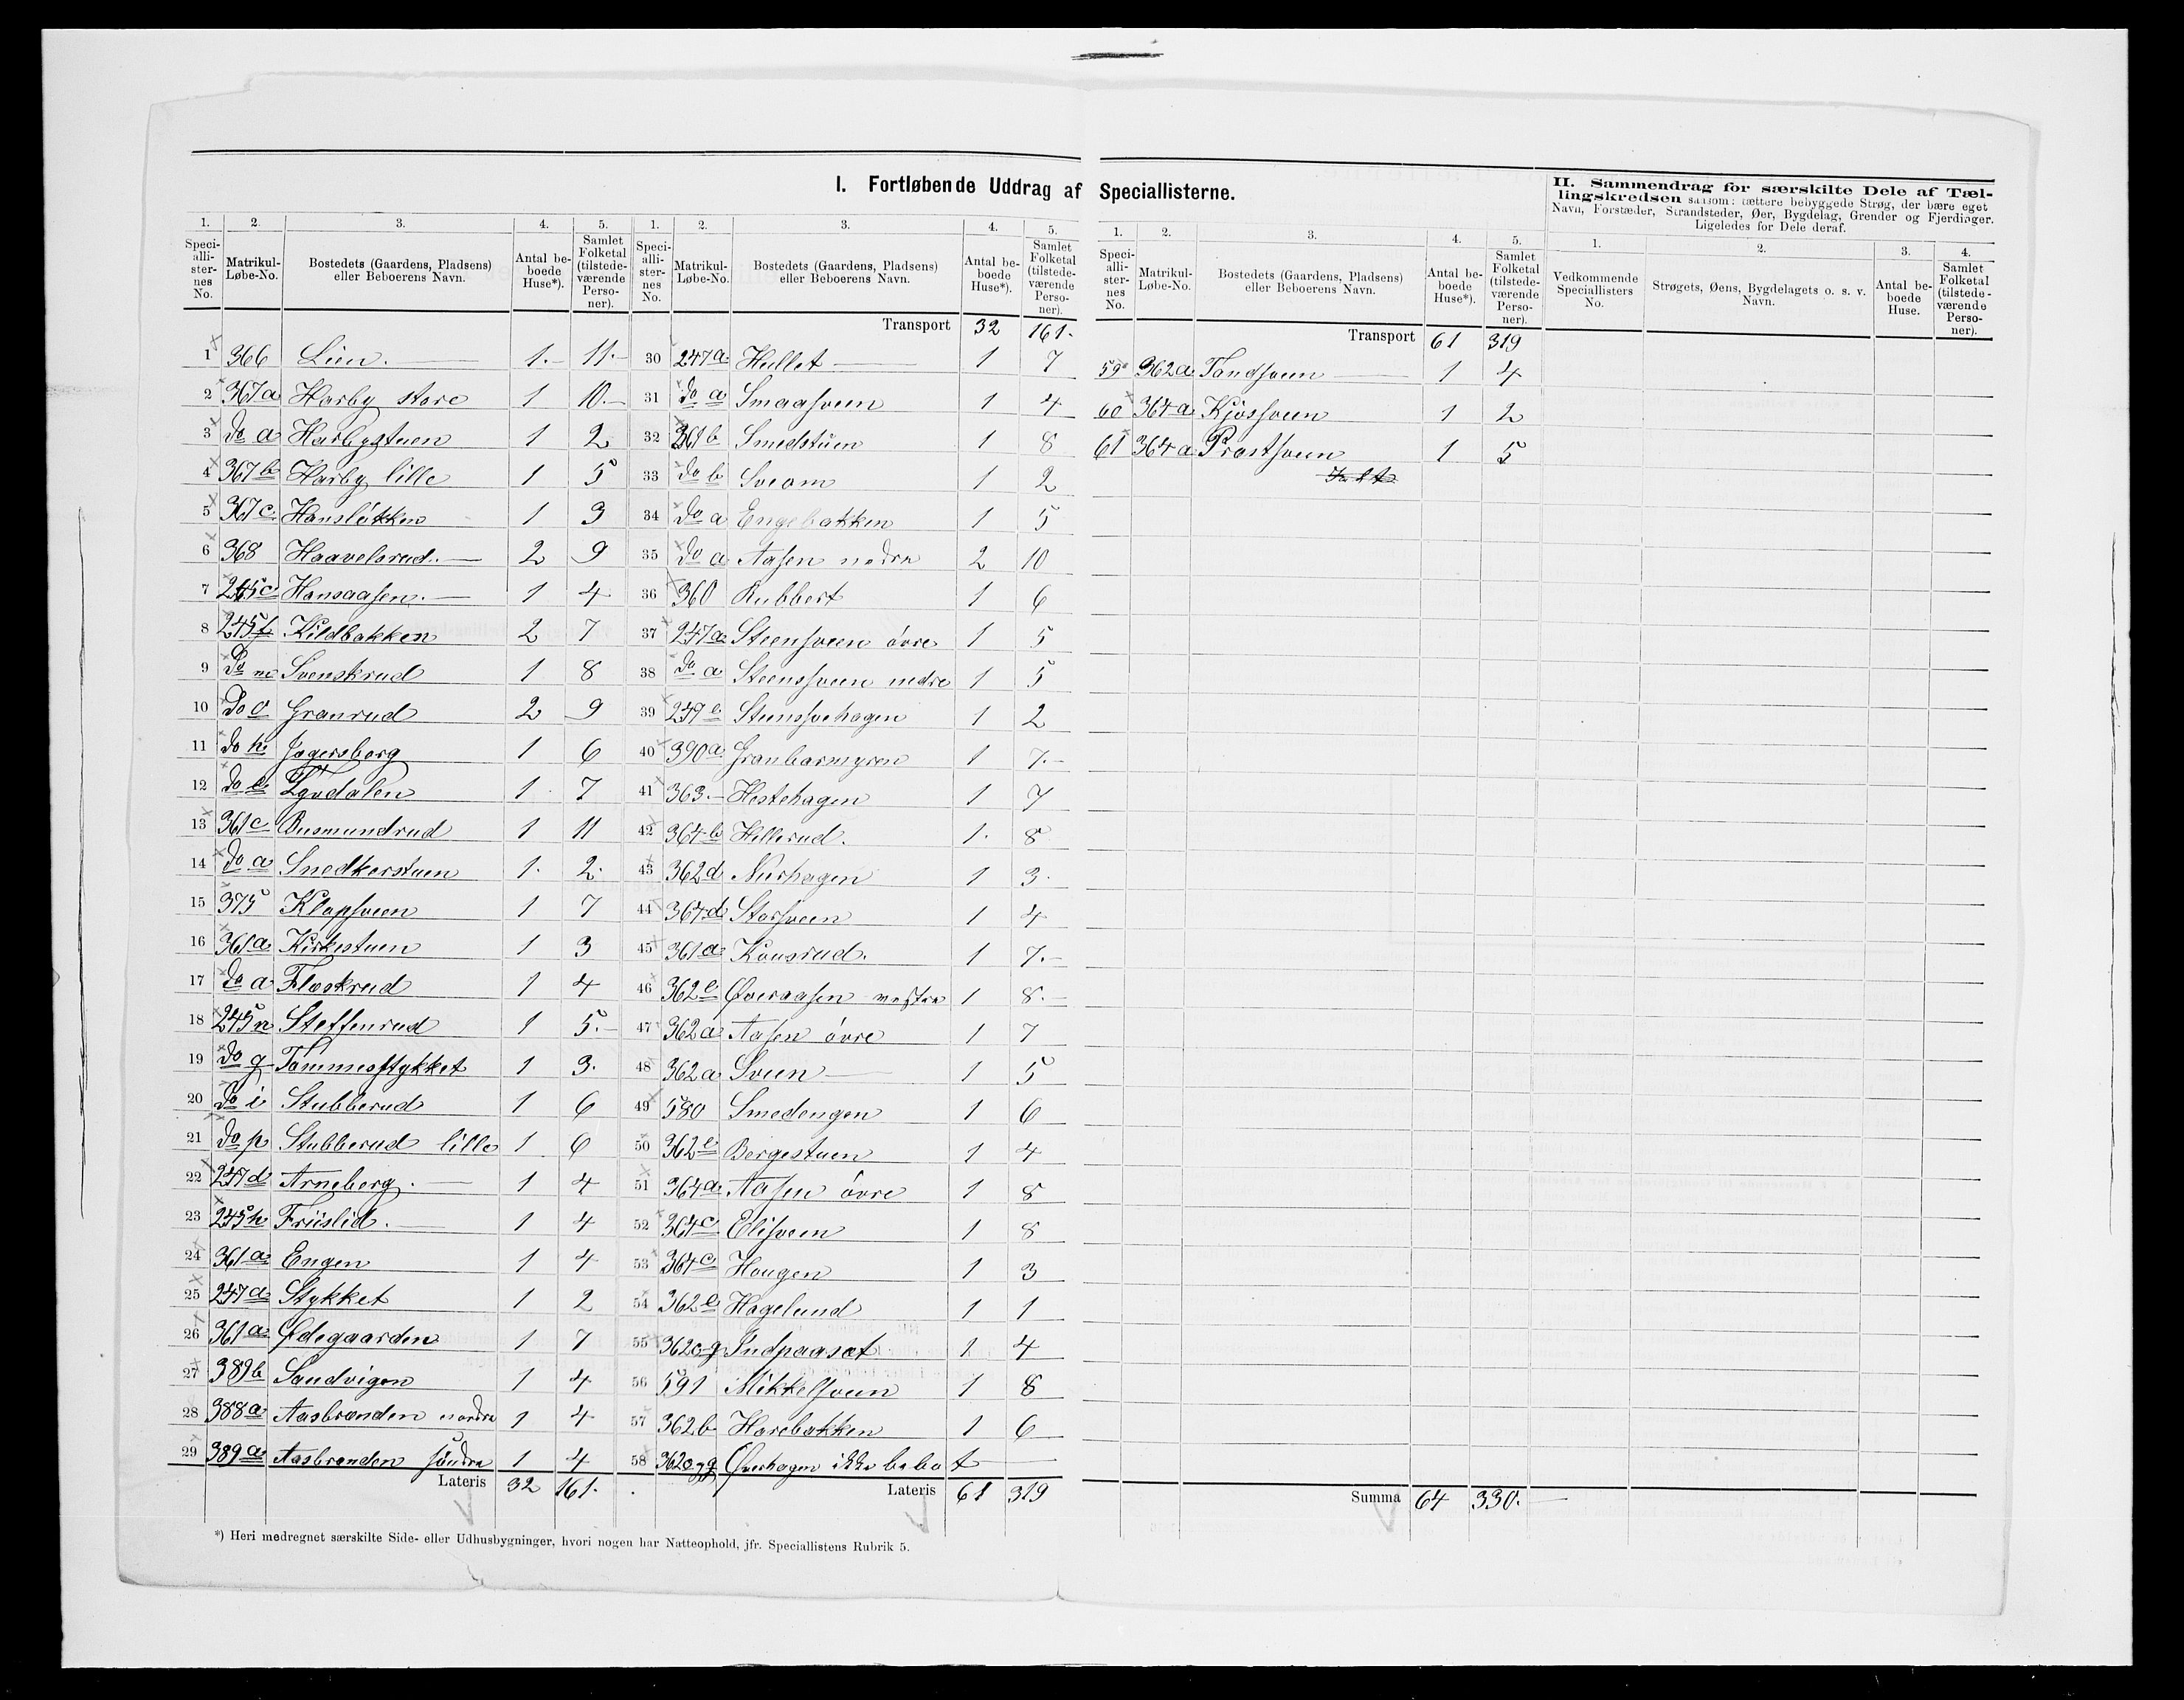 I. Fortløbende Uddrag af Speciallisterne.
1. 2. 3. 4. 5.
Speciallisternes No. Matrikul-Løbe-No. Bostedets (Gaardens, Pladsens) eller Beboerens Navn. Antal beboede Huse*). Samlet Folketal (tilstedeværende Personer).
1 366 Lien. 1. 11.
2 367a Harby store 1 10.
3 do a Harbystuen 1 2
4 367b Harby lille 1 5
5 367c Hansløkken 1 3
6 368 Haavelsrud. 2 9
7 245c Hansaasen. 1 4
8 245f Kildbakken 2 7
9 do m Svenskrud 1 8
10 do o Granrud 2 9
11 do k Jegersborg 1 6
12 do e Lyvdalen 1 7
13 361c Busmundrud 1 11
14 do a Snedkerstuen 1. 2.
15 375 Klapsveen 1 7
16 361a Kirkestuen 1 3
17 do a Fleskrud 1 4
18 245n Steffenrud 1 5.
19 do g Tømmestykket 1 3.
20 do i Stubberud 1 6
21 do p Stubberud lille 1 6
22 247d Arneberg. 1 4
23 245h Friislid. 1 4
24 361a Engen 1 4
25 247a Stykket 1 2
26 361a Ødegaarden 1 7
27 389b Sandvigen 1 4
28 388a Aasbrænden nordre 1 4
29 389a Aasbrænden søndre 1 4
Lateris 32 161.
1. 2. 3. 4. 5.
Speciallisternes No. Matrikul-Løbe-No. Bostedets (Gaardens, Pladsens) eller Beboerens Navn. Antal beboede Huse*). Samlet Folketal (tilstedeværende Personer).
Transport 32 161.
30 247a Hullet 1 7
31 do a Smaasveen 1 4
32 361b Smedstuen 1 8
33 do b Sveom 1 2
34 do a Engebakken 1 5
35 do a Aasen nedre 2 10
36 360 Rubbert 1 6
37 247a Steensveen øvre 1 5
38 do a Steenssveen nedre 1 5
39 247e Steenssvehagen 1 2
40 390a Granbærmyren 1 7.
41 363. Hestehagen 1 7
42 364b Hillerud. 1. 8
43 362d Nurhagen 1 3.
44 364d Storsveen 1 4
45 361a Konsrud. 1 7.
46 362e Øveraasen vestre 1 8.
47 362a Aasen øvre 1 7
48 362a Sveen 1 5
49 580 Smedengen 1 6
50 362e Bergestuen 1 4
51 364a Aasen øvre 1 8
52 364c Elisveen 1 8
53 364c Hougen 1 3
54 362e Hagelund 1 1
55 362 og Indpaasæt 1 4
56 591 Mikkelsveen 1 8
57 362b Harebakken 1 6
58 362 Øverhagen ikke beboet
Lateris 61 319
1. 2. 3. 4. 5.
Speciallisternes No. Matrikul-Løbe-No. Bostedets (Gaardens, Pladsens) eller Beboerens Navn. Antal beboede Huse*). Samlet Folketal (tilstedeværende Personer).
Transport 61 319
59 362a Tandsveen 1 4
60 364a Kjossveen 1 2
61 364a Præstsveen 1 5
Summa 64 330.
II. Sammendrag for særskilte Dele af Tæl-
lingskredsen saasom: tættere bebyggede Strøg, der bære eget
Navn, Forstæder, Strandsteder, Øer, Bygdelag, Grender og Fjerdinger.
Ligeledes for Dele deraf.
1. 2. 3. 4.
Vedkommende Speciallisters No. Strøgets, Øens, Bygdelagets o. s. v. Navn. Antal beboede Huse. Samlet Folketal (tilstedeværende Personer).
*) Heri medregnet særskilte Side- eller Udhusbygninger, hvori nogen har Natteophold, jfr. Speciallistens Rubrik 5.